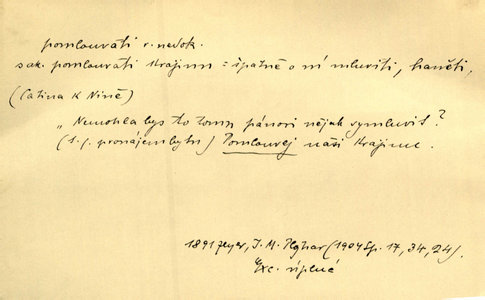 pomlouvati v. nedok.
sak. pomlouvati krajinu = špatně o ní mluviti, haněti,
(Catina k Nině)
„Nemohla bys to tomu pánovi nějak symluvit?
(t. j. pronájem bytu) Pomlouvej naši krajinu.
1891 Zeyer, J. M. Plojhar (1904 Sp. 17, 34, 24).
Exc. úplná